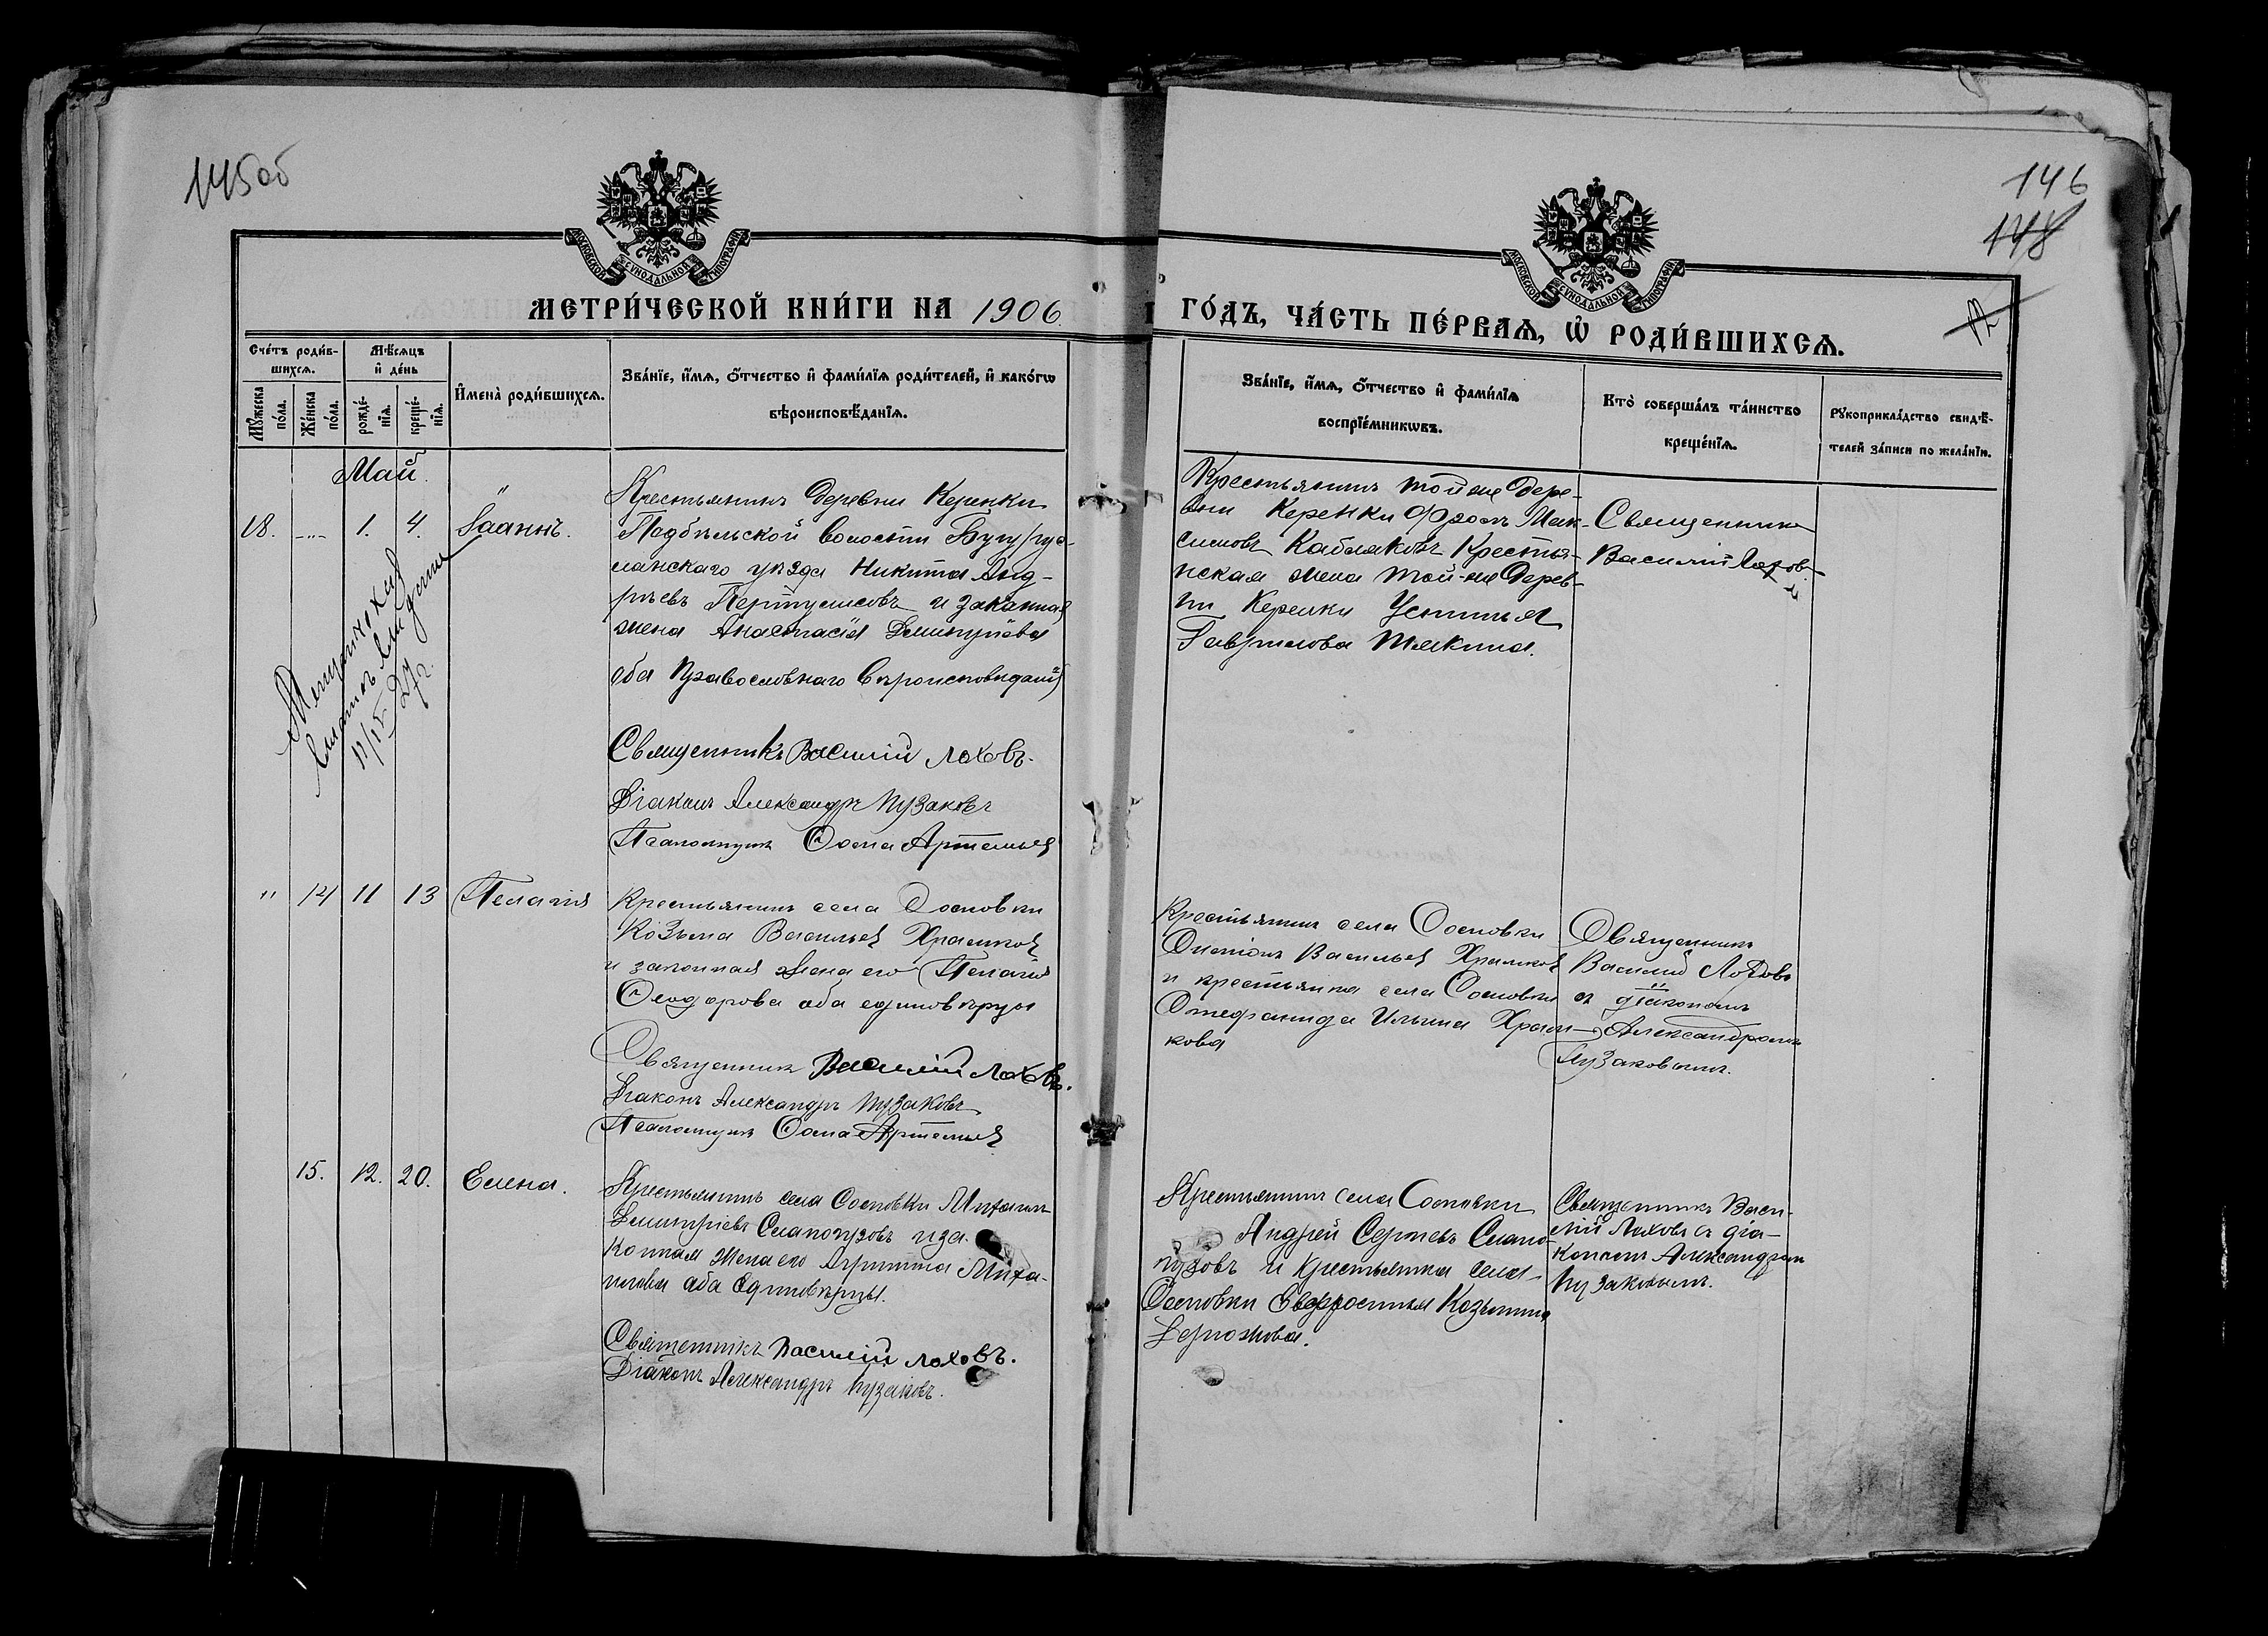 145об
146
148
12
МОСКОВСКОЙ СѴНОДАЛЬНОЙ ТИПОГРАФІИ
МОСКОВСКОЙ СѴНОДАЛЬНОЙ ТИПОГРАФІИ
МЕТРИ́ЧЕСКОЙ КНИ́ГИ НА 1906
ГО́ДЪ, ЧА́СТЬ ПЕ́РВАѦ, Ѽ РОДИ́ВШИХСѦ.
Сче́тъ роди́в-
шихсѧ.
Мꙋ́жеска по́ла.
Же́нска по́ла.
Мѣ́сѧцъ и҆ де́нь
рожде́-
нїѧ.
креще́-
нїѧ.
И҆мена̀ роди́вшихсѧ.
Зва́нїе, и҆́мѧ, ѻ҆́тчество и҆ фами́лїѧ роди́телей, и҆ како́гѡ
вѣроисповѣ́данїѧ.
Зва́нїе, и҆́мѧ, ѻ҆́тчество и҆ фами́лїѧ
воспрїе́мникѡвъ.
Кто̀ соверша́лъ та́инство
креще́нїѧ.
Рꙋкоприкла́дство свидѣ́-
телей за́писи по жела́нїю.
Май.
18. -"- 1. 4. Іоаннъ.
Крестьянинъ деревни Керенки
Подбѣльской волости Бугуру-
сланскаго уѣзда Никита Анд-
рѣевъ и законная
жена Анастасія Димитріева
оба Православнаго вѣроисповѣданія
Священникъ Василій Лоховъ.
Діаконъ Александръ Пузаковъ
Псаломщикъ Ѳома Артемьев
11/IV 27 г.
Крестьянинъ той же дере-
вни Керенки Фролъ Мак-
симовъ Кабляковъ Кресть-
янская жена той-же Дерев-
ни Керенки Устинья
Гаврилова
Священникъ
Василій Лоховъ
" 14 11 13 Пелагія
Крестьянинъ села Сосновки
Козьма Васильев Храмков
и законная жена его Пелагія
Ѳеодорова оба единовѣрцы
Священник Василій Лоховъ.
Діаконъ Александръ Пузаковъ
Псаломщикъ Ѳома Артемьев
Крестьянин села Сосновки
Васильев Храмков
и крестьянка села Сосновки
Стефанида Ильина Храм-
кова
Священник
Василій Лоховъ
с діакономъ
Александромъ
Пузаковымъ.
15. 12. 20. Елена.
Крестьянинъ села Сосновки Михаилъ
Димитріевъ Слапогузовъ и за-
конная жена его Агрипина Миха-
илова оба Единовѣрцы.
Священникъ Василій Лоховъ.
Діаконъ Александръ Пузаковъ.
Крестьянинъ села Сосновки
Андрей Сергѣевъ Слапо-
гузовъ и крестьянка села
Сосновки Евфросинія Козьмина
Священникъ Васи-
лій Лоховъ съ діа-
кономъ Александромъ
Пузаковымъ.